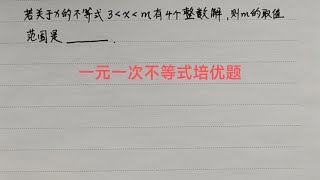 若关于x的不等式 3<x<m有4个整数解,则m的取值
范围是______.
一元一次不等式培优题